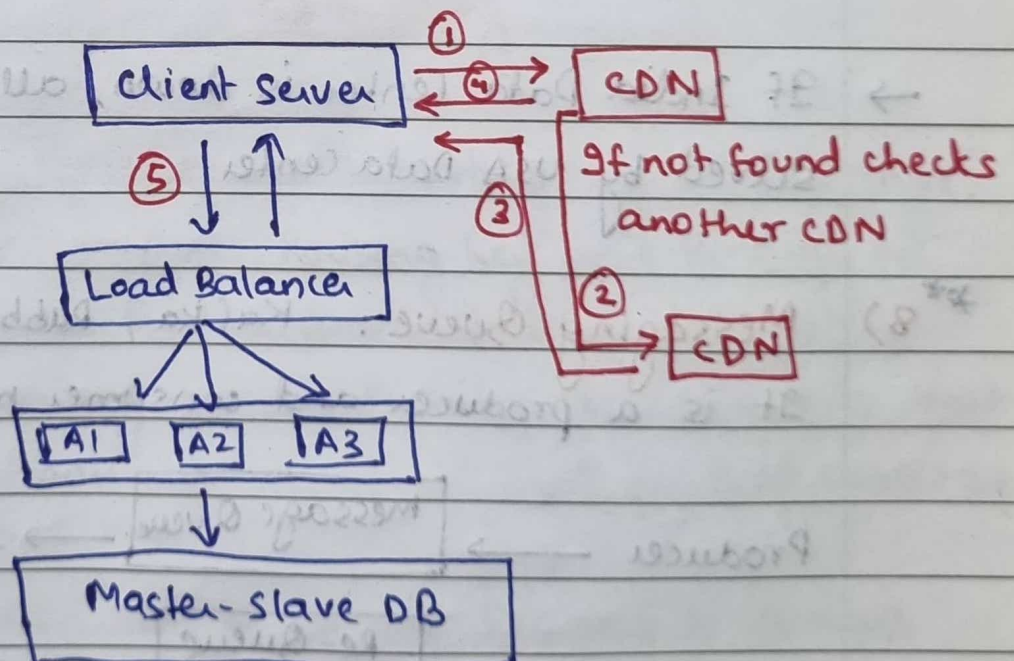 ①
Client Server
④
CDN
If not found checks
another CDN
⑤
③
Load Balancer
②
CDN
A1 A2 A3
Master-Slave DB